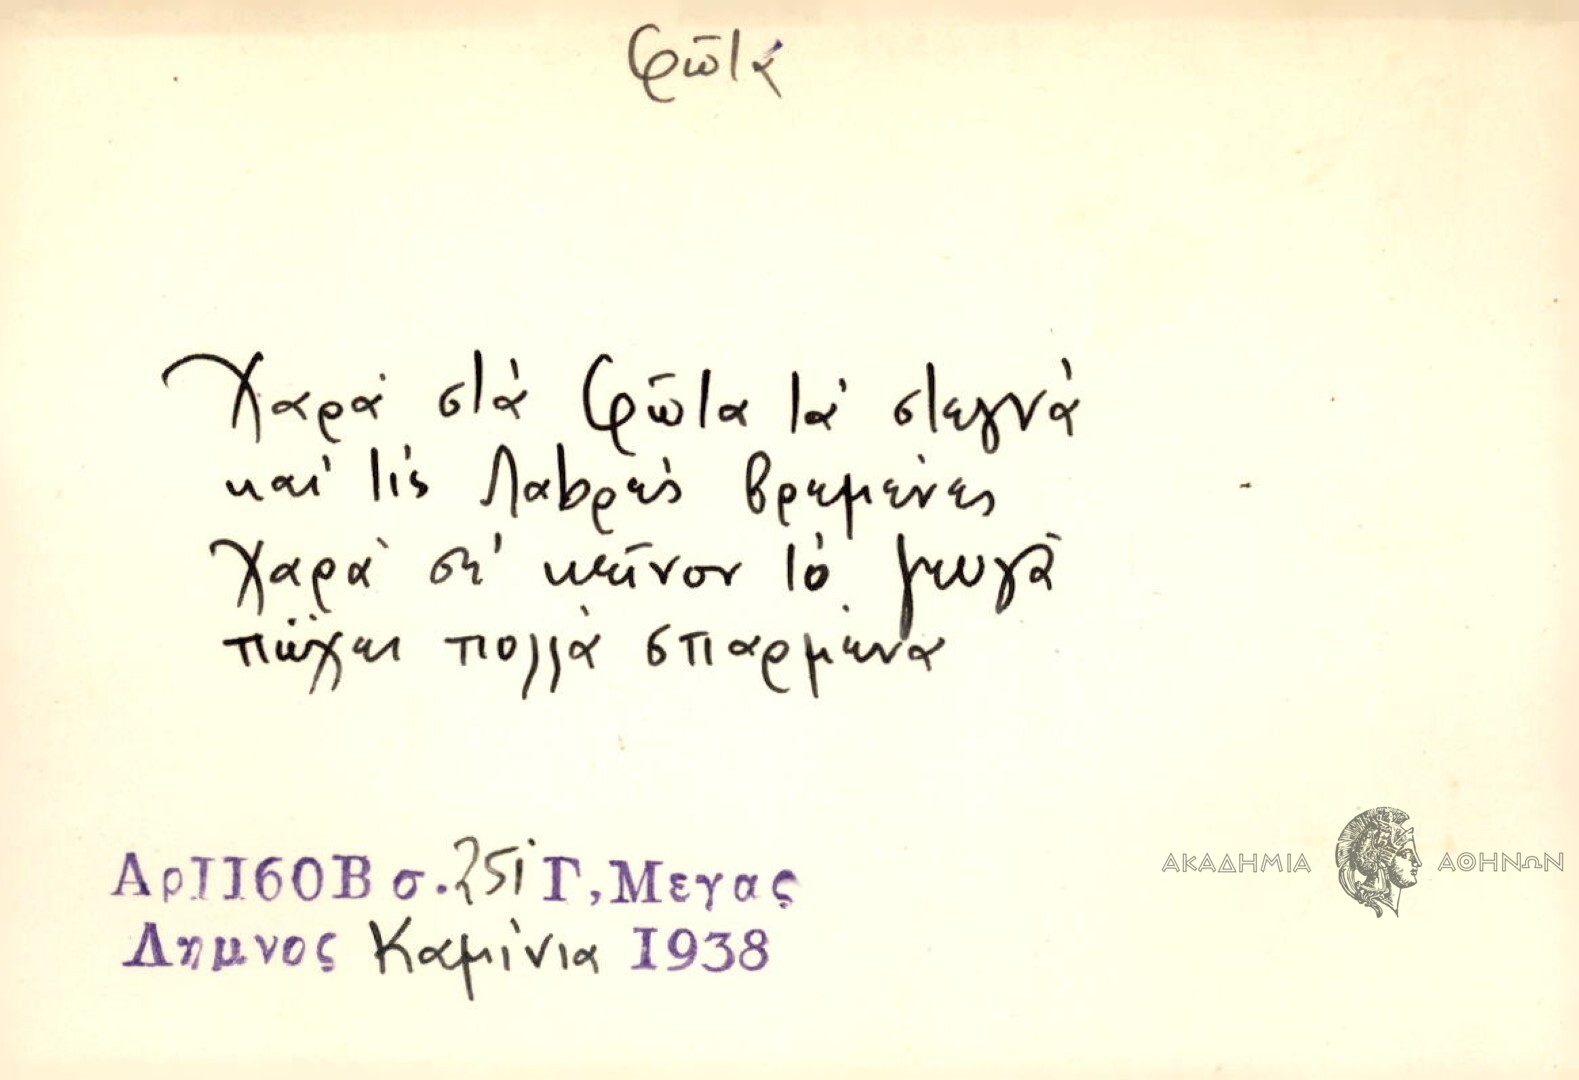 Φῶτα
Χαρὰ στὰ Φῶτα τὰ στεγνὰ
καὶ τὶς Λαβρὲς βρεμένες
Χαρὰ σὲ κεῖνον τὸ ζευγᾶ
πὤχει πολλὰ σπαρμένα
Αρ II60Β σ. 251 Γ, Μεγας
Λημνος Καμίνια 1938
ΑΚΑΔΗΜΙΑ ΑΘΗΝΩΝ